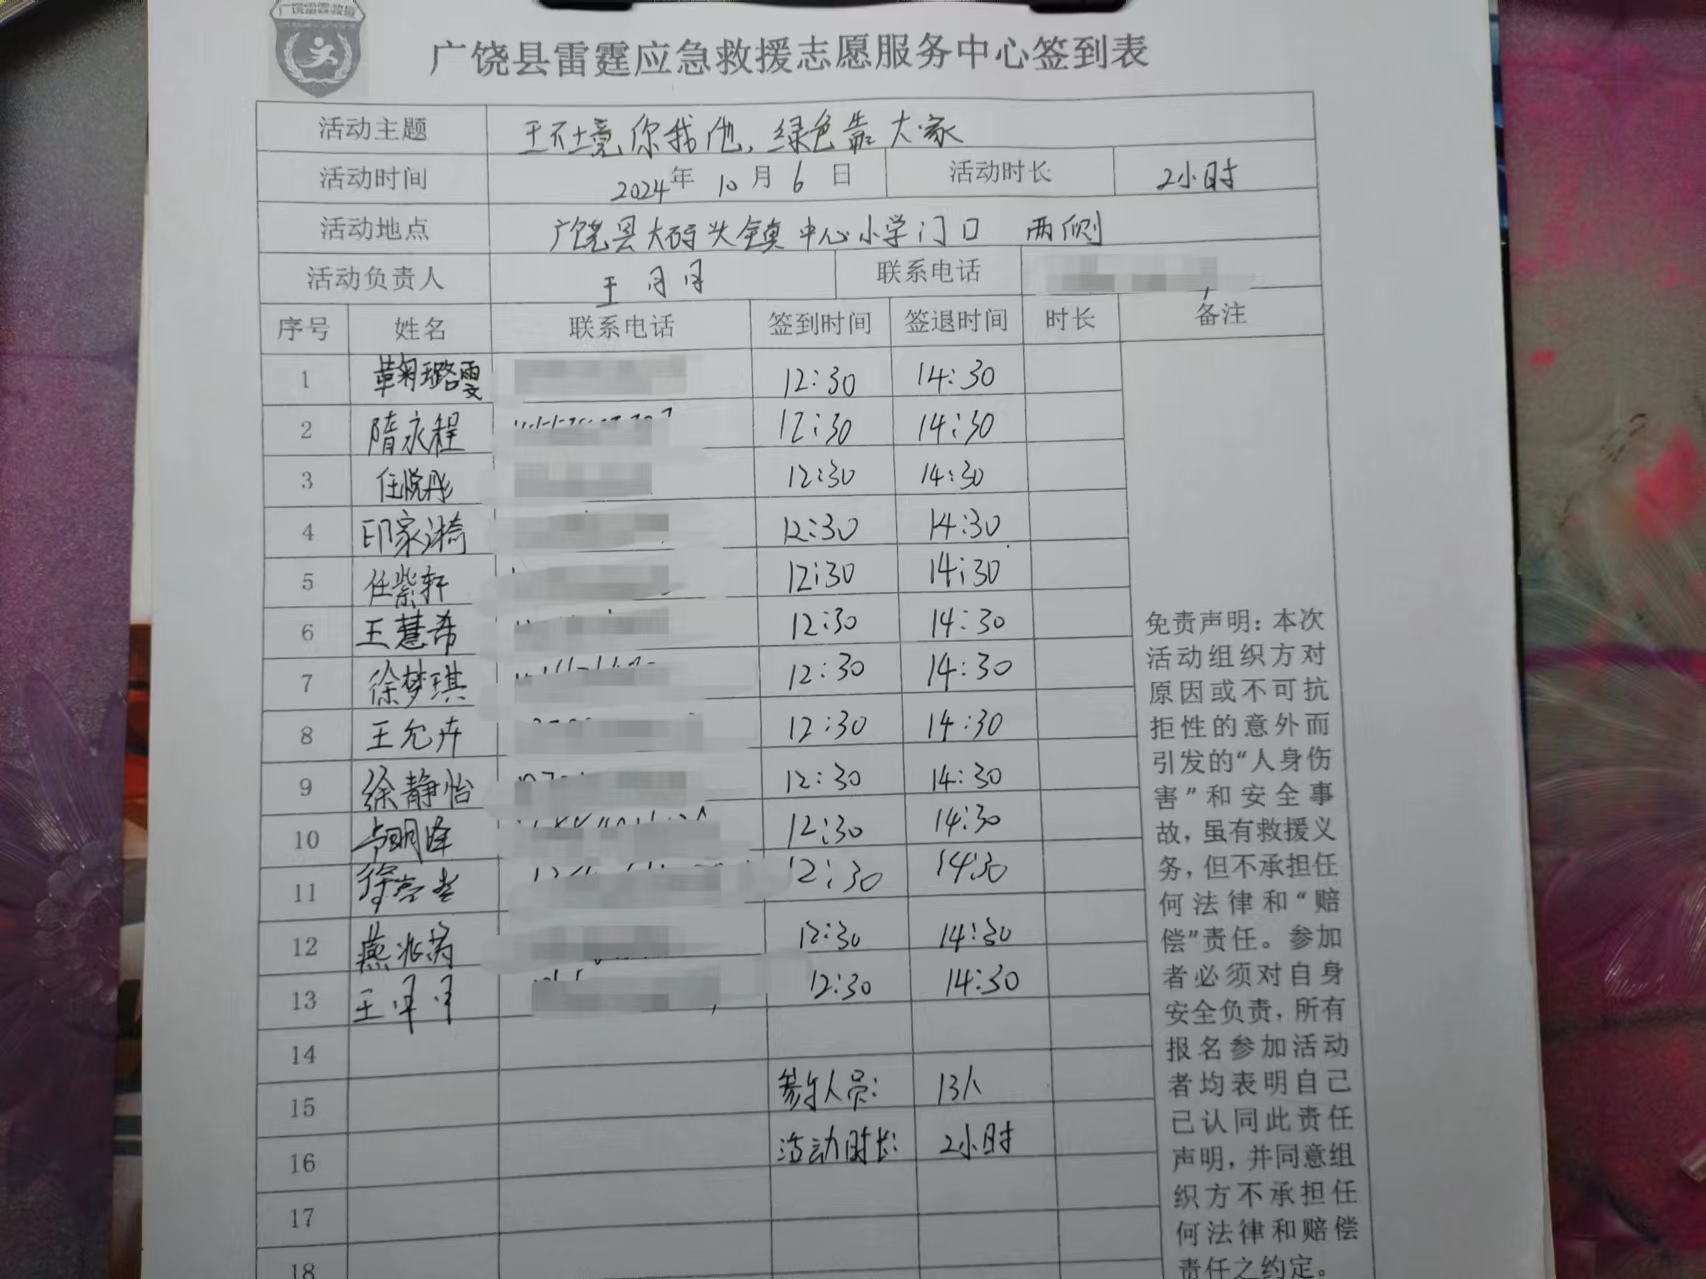 广饶雷霆救援
广饶县雷霆应急救援志愿服务中心签到表
活动主题 环境你我他,绿色靠大家
活动时间 2024年 10月 6日 活动时长 2小时
活动地点 广饶县大码头镇中心小学门口 两侧
活动负责人 王月月 联系电话
序号 姓名 联系电话 签到时间 签退时间 时长 备注
1 鞠璐雯 12:30 14:30
2 隋永程 12:30 14:30
3 任悦彤 12:30 14:30
4 印家漪 12:30 14:30
5 任紫轩 12:30 14:30
6 王慧希 12:30 14:30
7 徐梦琪 12:30 14:30
8 王允卉 12:30 14:30
9 徐静怡 12:30 14:30
10 12:30 14:30
11 12:30 14:30
12 燕兆芮 12:30 14:30
13 王月月 12:30 14:30
14
15 参与人员: 13人
16 活动时长: 2小时
17
18
免责声明:本次
活动组织方对
原因或不可抗
拒性的意外而
引发的“人身伤
害”和安全事
故,虽有救援义
务,但不承担任
何法律和“赔
偿”责任。参加
者必须对自身
安全负责,所有
报名参加活动
者均表明自己
已认同此责任
声明,并同意组
织方不承担任
何法律和赔偿
责任之约定。